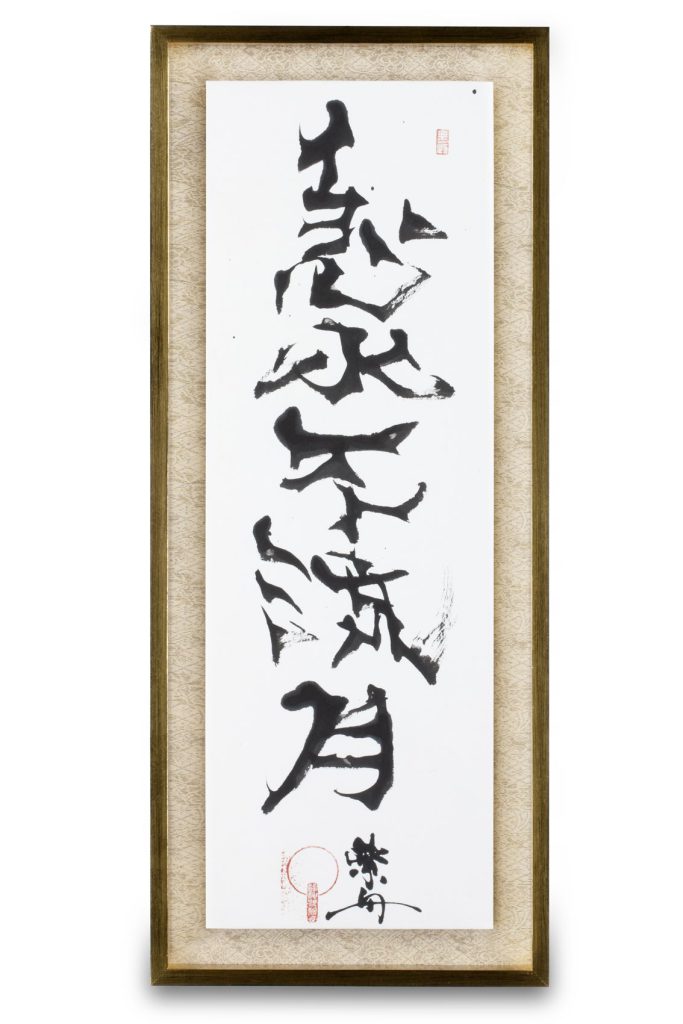 急水不流月